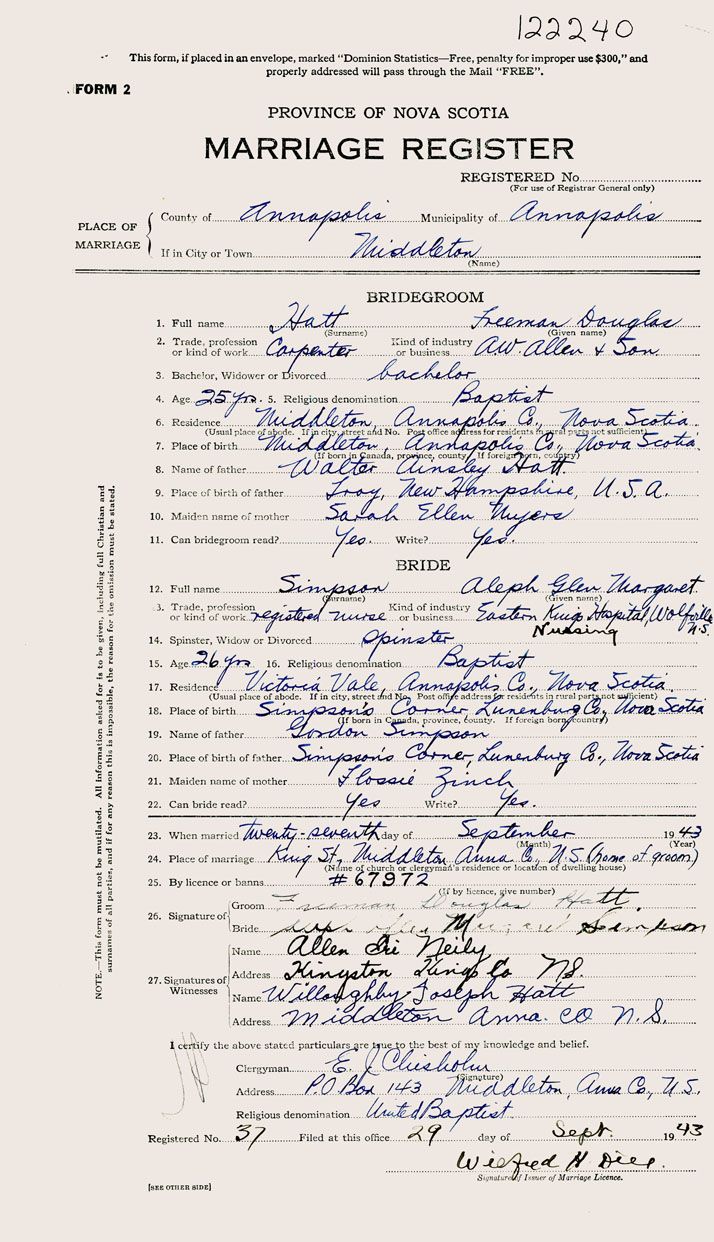 122240
This form, if placed in an envelope, marked "Dominion Statistics—Free, penalty for improper use $300," and
properly addressed will pass through the Mail "FREE".
FORM 2
PROVINCE OF NOVA SCOTIA
MARRIAGE REGISTER
REGISTERED No.
(For use of Registrar General only)
PLACE OF MARRIAGE
County of Annapolis Municipality of Annapolis
If in City or Town Middleton
(Name)
BRIDEGROOM
1. Full name Hatt Freeman Douglas
(Surname) (Given name)
2. Trade, profession or kind of work Carpenter Kind of industry or business A.W. Allen & Son
3. Bachelor, Widower or Divorced bachelor
4. Age 25 yrs. 5. Religious denomination Baptist
6. Residence Middleton, Annapolis Co., Nova Scotia
(Usual place of abode. If in city, street and No. Post office address for residents in rural parts not sufficient)
7. Place of birth Middleton, Annapolis Co., Nova Scotia.
(If born in Canada, province, county. If foreign born, country)
8. Name of father Walter Ainsley Hatt
9. Place of birth of father Troy, New Hampshire, U.S.A.
10. Maiden name of mother Sarah Ellen Myers
11. Can bridegroom read? Yes. Write? Yes.
BRIDE
12. Full name Simpson Aleph Glen Margaret
(Surname) (Given name)
13. Trade, profession or kind of work registered nurse Kind of industry or business Eastern Kings Hospital, Wolfville N.S.
Nursing
14. Spinster, Widow or Divorced Spinster
15. Age 26 yrs 16. Religious denomination Baptist
17. Residence Victoria Vale, Annapolis Co., Nova Scotia
(Usual place of abode. If in city, street and No. Post office address for residents in rural parts not sufficient)
18. Place of birth Simpson's Corner, Lunenburg Co., Nova Scotia
(If born in Canada, province, county. If foreign born, country)
19. Name of father Gordon Simpson
20. Place of birth of father Simpson's Corner, Lunenburg Co., Nova Scotia
21. Maiden name of mother Flossie Zinck
22. Can bride read? Yes Write? Yes.
23. When married twenty-seventh day of September 1943
(Month) (Year)
24. Place of marriage King St., Middleton Anna Co., N.S. (home of groom)
(Name of church or clergyman's residence or location of dwelling house)
25. By licence or banns #67972
(If by licence, give number)
26. Signature of
Groom Freeman Douglas Hatt
Bride Margaret Simpson
27. Signatures of Witnesses
Name Allen Neily
Address Kingston Kings Co NS.
Name Willoughby Joseph Hatt
Address Middleton Anna. CO N.S.
I certify the above stated particulars are true to the best of my knowledge and belief.
Clergyman E. J. Chisholm
(Signature)
Address P.O Box 143 Middleton, Anna Co., N.S.
Religious denomination United Baptist
Registered No. 37 Filed at this office 29 day of Sept. 1943
Wilfred H.
Signature of Issuer of Marriage Licence.
[SEE OTHER SIDE]
NOTE.—This form must not be mutilated. All Information asked for is to be given, including full Christian and
surnames of all parties, and if for any reason this is impossible, the reason for the omission must be stated.